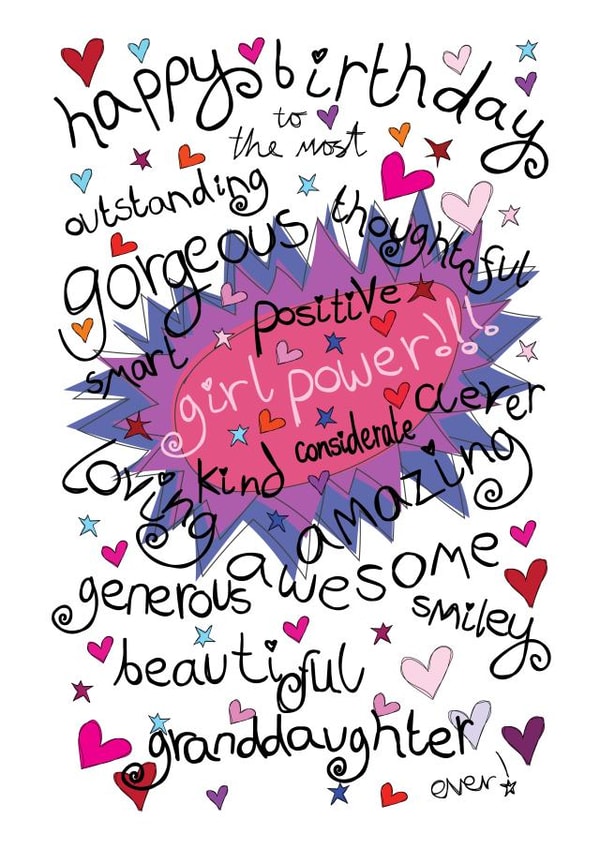 happy birthday
to
the most
outstanding
gorgeous thoughtful
positive
smart
girl power!!!
clever
considerate
loving kind
amazing
awesome
generous
smiley
beautiful
granddaughter
ever!